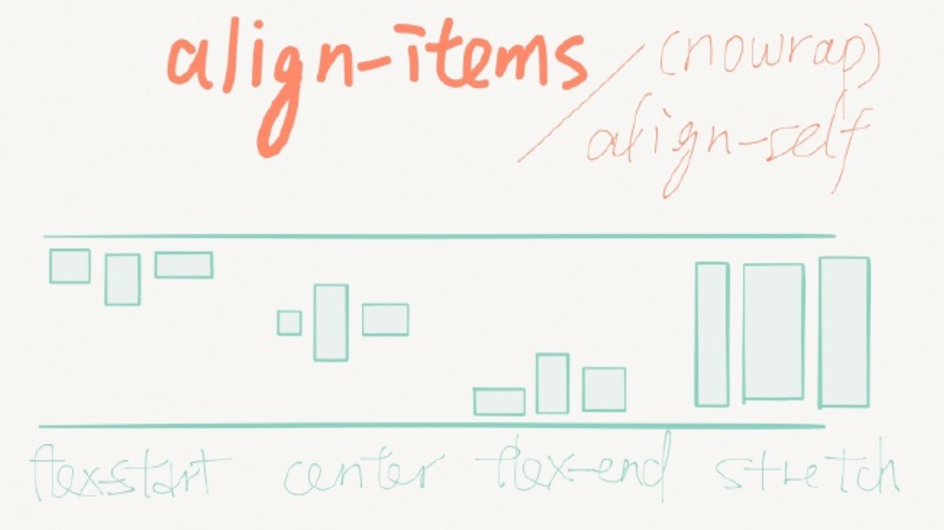 align-items / (nowrap)
align-self
flex-start center flex-end stretch